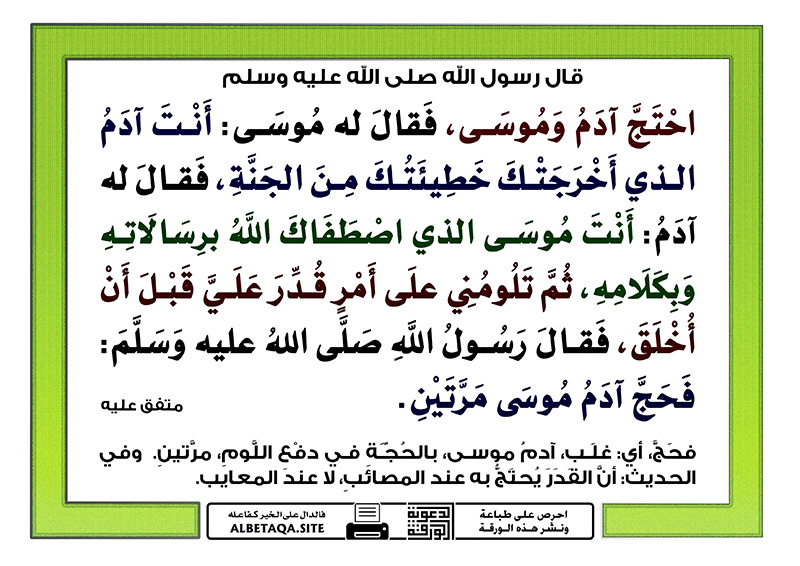 قال رسول الله صلى الله عليه وسلم
احْتَجَّ آدَمُ وَمُوسَى، فَقالَ له مُوسَى: أَنْتَ آدَمُ
الذي أَخْرَجَتْكَ خَطِيئَتُكَ مِنَ الجَنَّةِ، فَقالَ له
آدَمُ: أَنْتَ مُوسَى الذي اصْطَفَاكَ اللَّهُ برِسَالَاتِهِ
وَبِكَلَامِهِ، ثُمَّ تَلُومُنِي علَى أَمْرٍ قُدِّرَ عَلَيَّ قَبْلَ أَنْ
أُخْلَقَ، فَقالَ رَسُولُ اللَّهِ صَلَّى اللهُ عليه وَسَلَّمَ:
فَحَجَّ آدَمُ مُوسَى مَرَّتَيْنِ.
متفق عليه
فحَجَّ، أي: غلَب، آدمُ موسى، بالحُجَّة في دفْع اللَّومِ، مرَّتينِ. وفي
الحديث: أنَّ القَدَرَ يُحتَجُّ به عند المصائبِ، لا عندَ المعايب.
احرص على طباعة
ونشر هذه الورقة
الورقة الدعوية
فالدال على الخير كفاعله
ALBETAQA.SITE